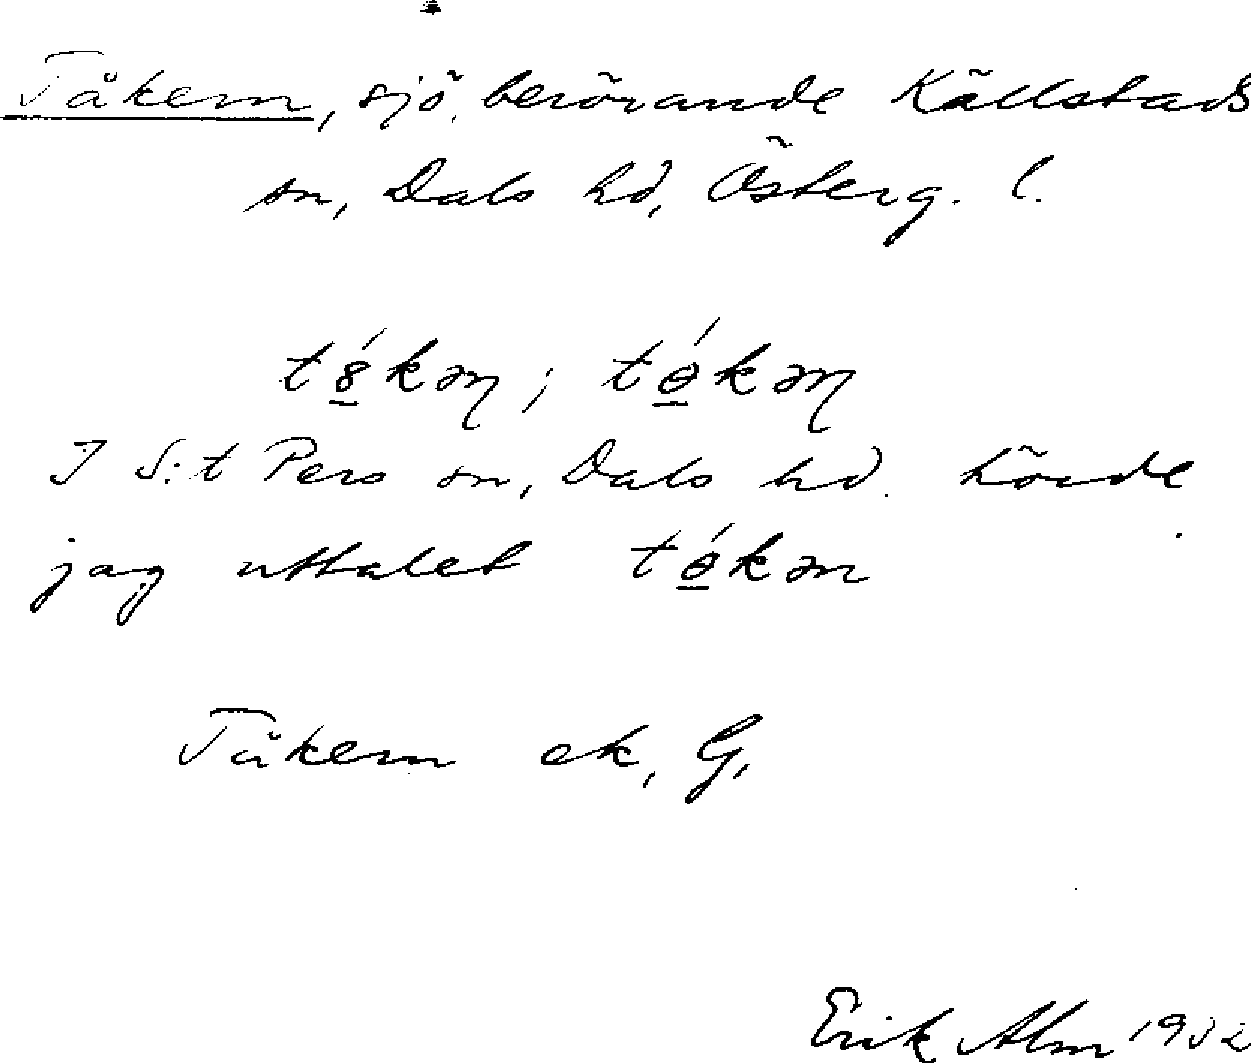 Tåkern, sjö, berörande Källstads
sn, Dals hd, Österg. l.
I S:t Pers sn, Dals hd. hörde
jag uttalet
Tåkern ek, G,
Erik Alm 1932